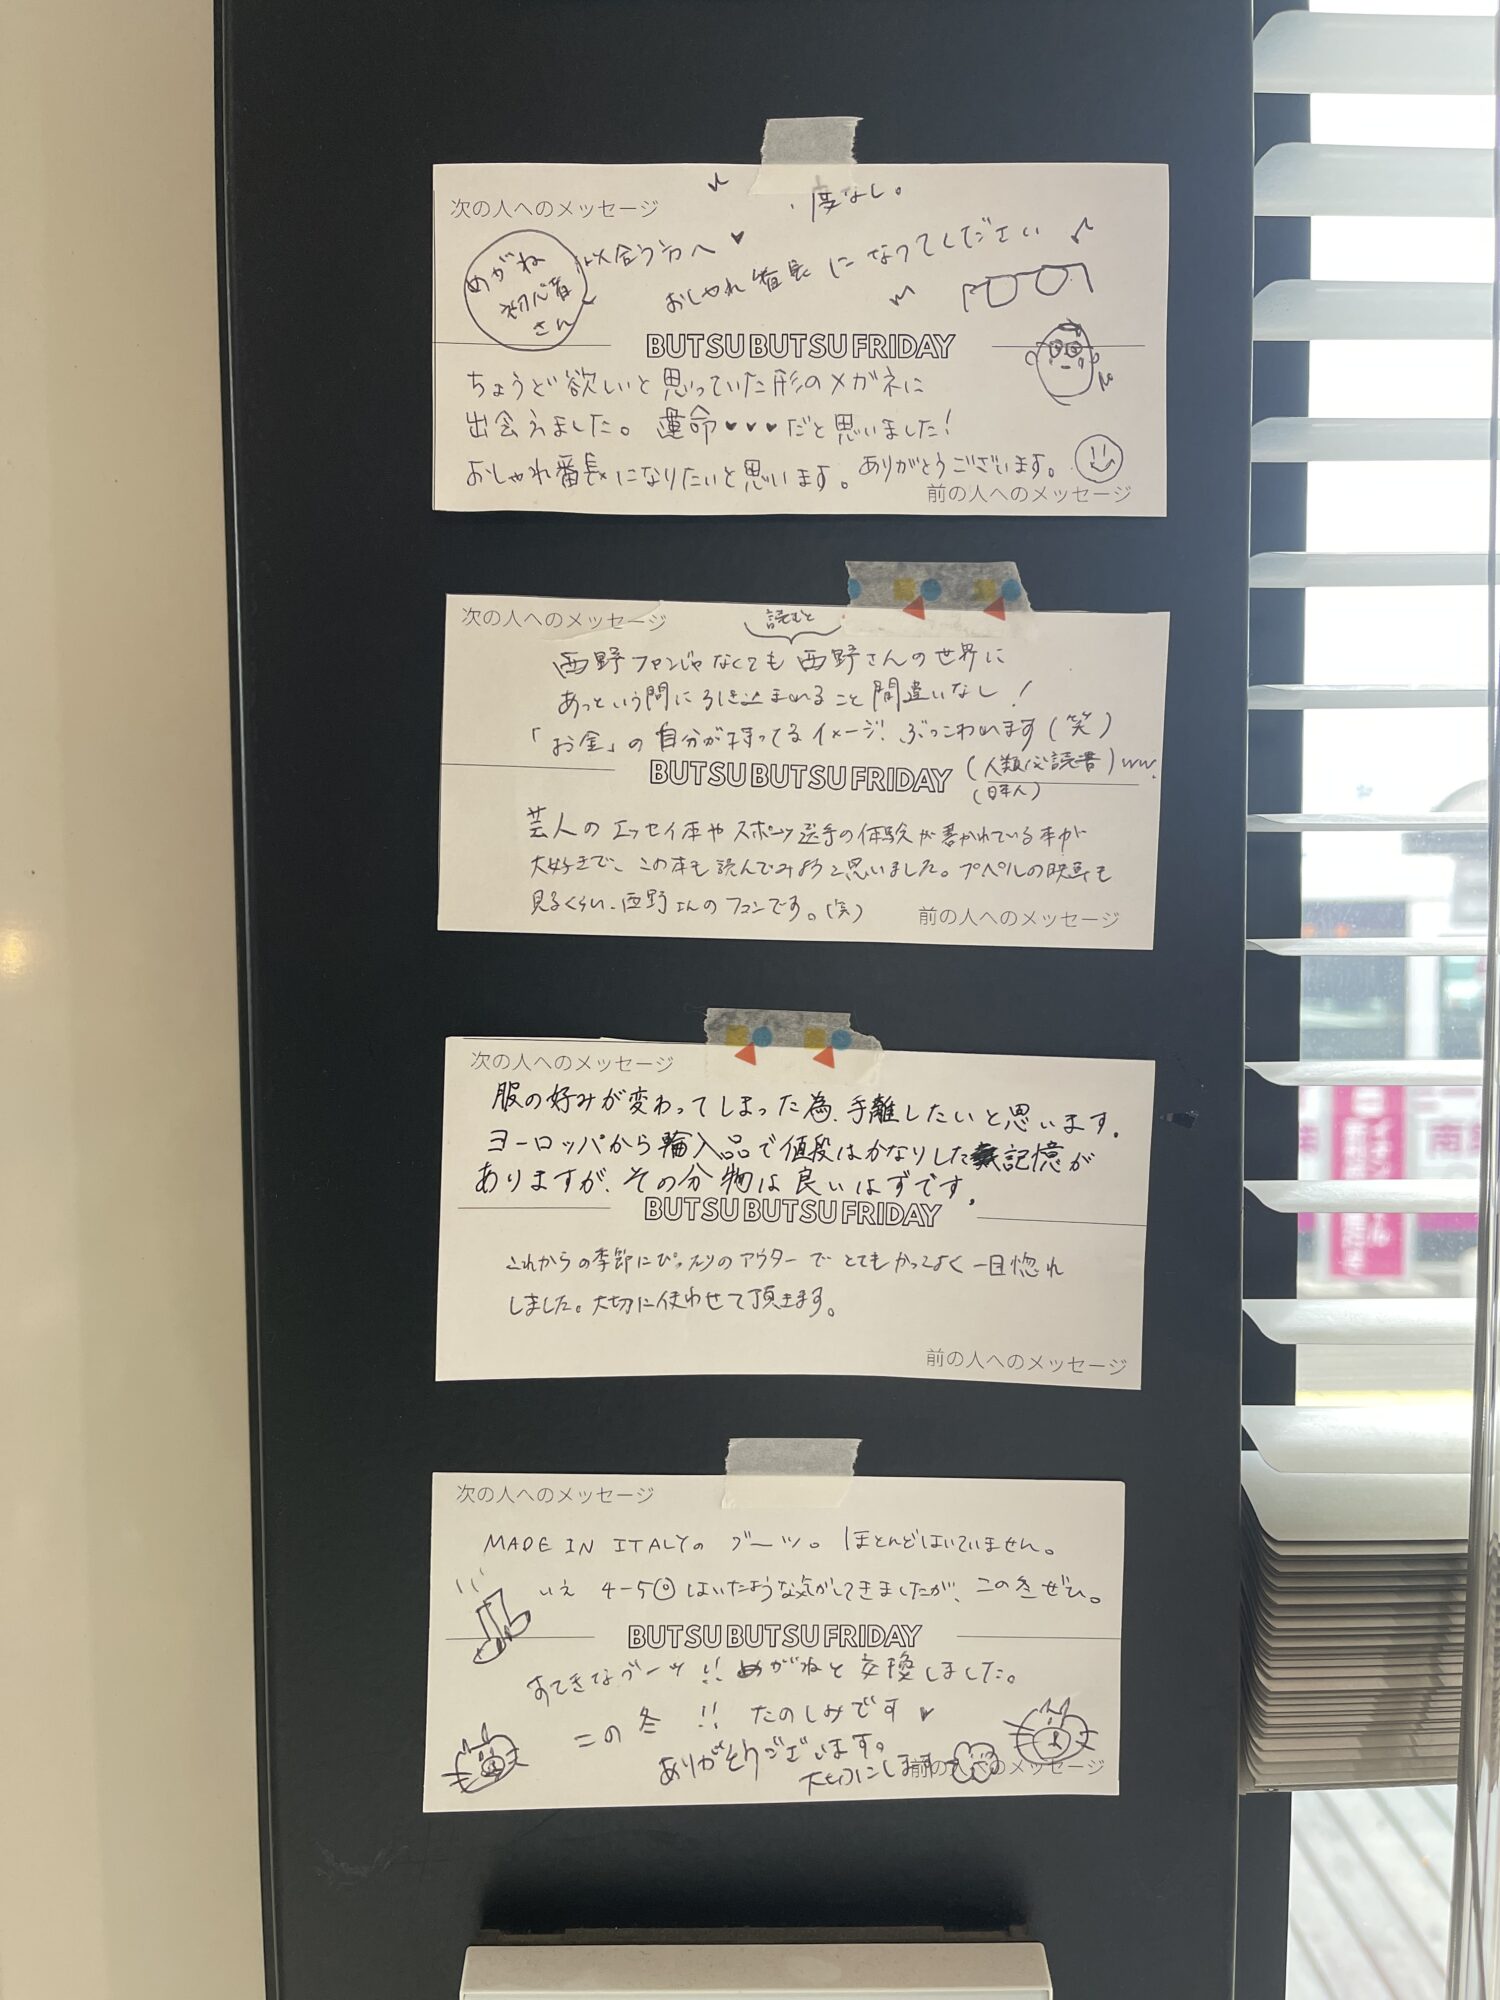 次の人へのメッセージ
度なし。
めがね
初心者
さん
似合う方へ
おしゃれ番長になってください
BUTSUBUTSUFRIDAY
ちょうど欲しいと思っていた形のメガネに
出会えました。運命♥♥♥だと思いました!
おしゃれ番長になりたいと思います。ありがとうございます。
前の人へのメッセージ
次の人へのメッセージ
読むと
西野ファンじゃなくても西野さんの世界に
あっという間に引き込まれること間違いなし!
「お金」の自分が持ってるイメージ、ぶっこわれます(笑)
(人類必読書)ww.
(日本人)
BUTSUBUTSUFRIDAY
芸人のエッセイ本やスポーツ選手の体験が書かれている本が
大好きで、この本も読んでみようと思いました。プペルの映画も
見るくらい、西野さんのファンです。(笑)
前の人へのメッセージ
次の人へのメッセージ
服の好みが変わってしまった為、手離したいと思います。
ヨーロッパから輸入品で値段はかなりした記憶が
ありますが、その分物は良いはずです。
BUTSUBUTSUFRIDAY
これからの季節にぴったりのアウターでとてもかっこよく一目惚れ
しました。大切に使わせて頂きます。
前の人へのメッセージ
次の人へのメッセージ
MADE IN ITALYのブーツ。ほとんどはいていません。
いえ 4-5回はいたような気がしてきましたが、この冬ぜひ。
BUTSUBUTSUFRIDAY
すてきなブーツ!!めがねと交換しました。
この冬!!たのしみです♥
ありがとうございます。
大切にします
前の人へのメッセージ